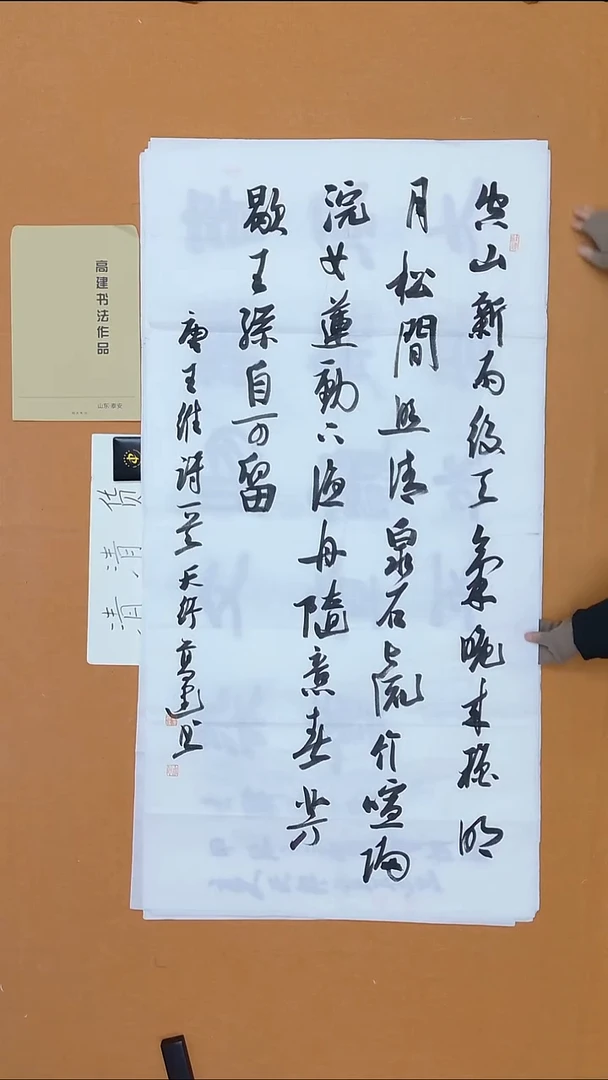 空山新雨後天氣晚来穐明
月松間照清泉石上流竹喧歸
浣女蓮動下漁舟隨意春芳
歇王孫自可留
唐王維詩一首天行高建书
高建书法作品
山东泰安
清清